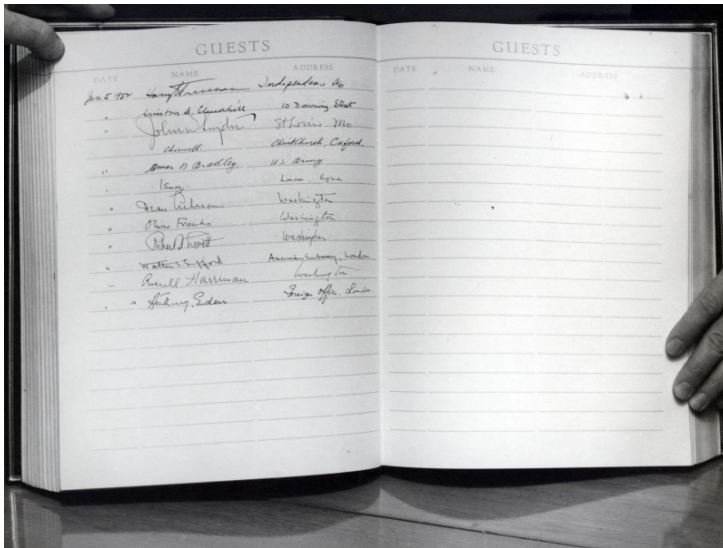 GUESTS
DATE NAME ADDRESS
Jan 5 1952 Harry Truman Independence Mo
" Winston S. Churchill 10 Downing Street
" John W Snyder St Louis Mo
Cherwell Christ Church, Oxford.
" Omar N Bradley U.S. Army
" Ismay
" Dean Acheson Washington
" Oliver Franks Washington
" Robert A Lovett Washington
" Walter S. Gifford American Embassy, London
" Averell Harriman Washington
" " Anthony Eden Foreign Office, London
GUESTS
DATE NAME ADDRESS